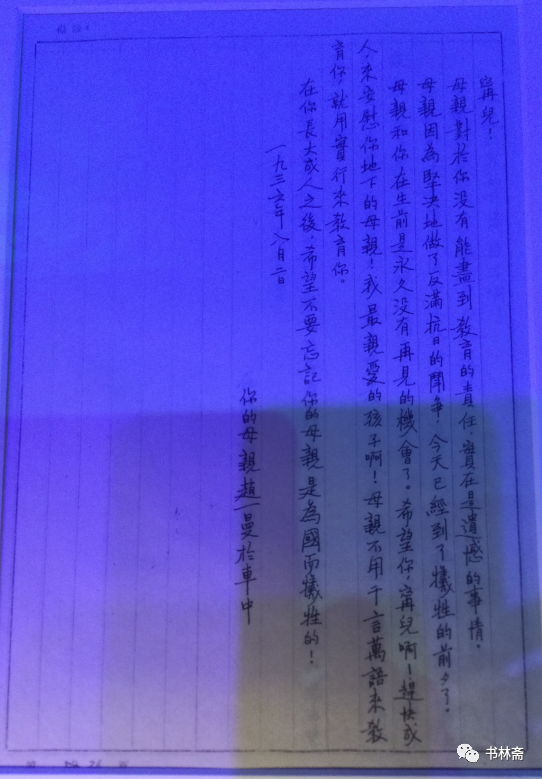 甯兒！
母親對於你沒有能盡到教育的責任，實在是遺憾的事情。
母親因為堅決地做了反滿抗日的鬥爭，今天已經到了犧牲的前夕了。
母親和你在生前是永久沒有再見的機會了。希望你，甯兒啊！趕快成
人，來安慰你地下的母親！我最親愛的孩子啊！母親不用千言萬語來教
育你，就用實行來教育你。
在你長大成人之後，希望不要忘記你的母親是為國而犧牲的！
一九三六年八月二日
你的母親趙一曼於車中
书林斋